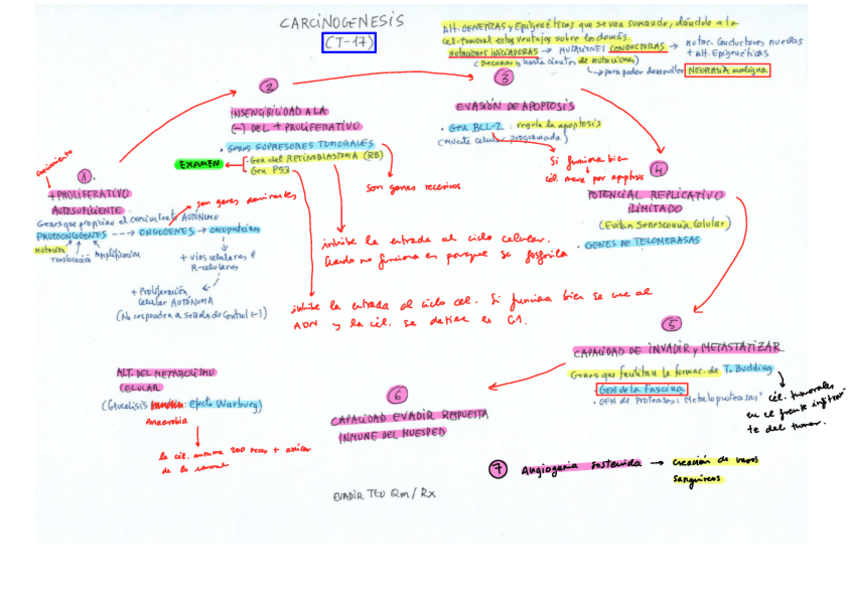 CARCINOGENESIS
(T-17)
Alt. GENETICAS y Epigenéticas que se van sumando, dándole a la
cel. tumoral estas ventajas sobre las demás.
MUTACIONES INICIADORAS → MUTACIONES CONDUCTORAS → mutac. conductores nuevas
+ Alt. Epigenéticas
(Decenas y hasta cientos de mutaciones)
→ para poder desarrollar NEOPLASIA maligna
1.
crecimiento
+ PROLIFERATIVO
AUTOSUFICIENTE
Genes que propician el crecimiento AUTÓNOMO
son genes dominantes
PROTOONCOGENES ---> ONCOGENES → oncoproteínas
mutación
Translocación
Amplificación
+ vías celulares y
R-celulares
+ Proliferación
celular AUTÓNOMA
(No responden a señales de control (-))
2
INSENSIBILIDAD A LA
(-) DEL + PROLIFERATIVO
• Genes SUPRESORES TUMORALES
EXAMEN
- Gen del RETINOBLASTOMA (RB)
- Gen P53
son genes recesivos
inhibe la entrada al ciclo celular.
Cuando no funciona es porque se fosforila
inhibe la entrada al ciclo cel. Si funciona bien se une al
ADN y la cél. se detiene en G1.
3
EVASIÓN DE APOPTOSIS
• Gen BCL-2: regula la apoptosis
(muerte celular programada)
Si funciona bien
cél. muere por apoptosis
4
POTENCIAL REPLICATIVO
ILIMITADO
(Evitan Senescencia Celular)
• GENES DE TELOMERASAS
5
CAPACIDAD DE INVADIR y METASTATIZAR
Genes que facilitan la formac. de T. Budding
- GEN de la Fascina
• GEN de Proteasas: Metaloproteasas
cél. tumorales
en el frente infiltran
te del tumor.
6
CAPACIDAD EVADIR RESPUESTA
INMUNE DEL HUESPED
7 Angiogenia sostenida → creación de vasos
sanguíneos
ALT. DEL METABOLISMO
CELULAR
(Glucolisis : efecto Warburg)
Anaerobia
la cél. consume 200 veces + azúcar
de lo normal
EVADIR TTO Qm/Rx